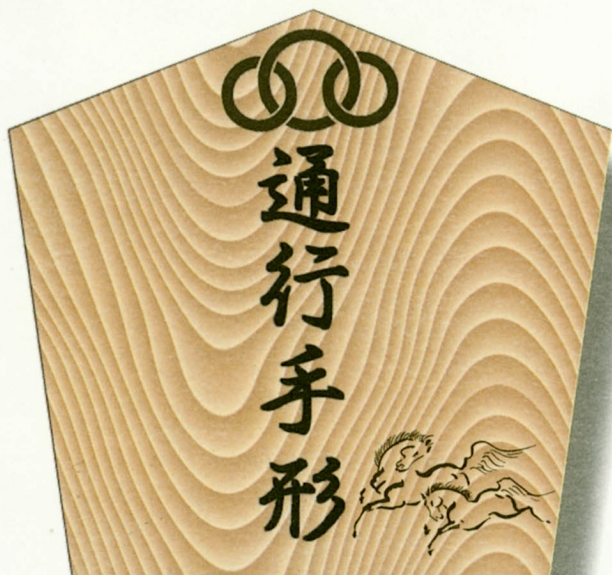 通行手形